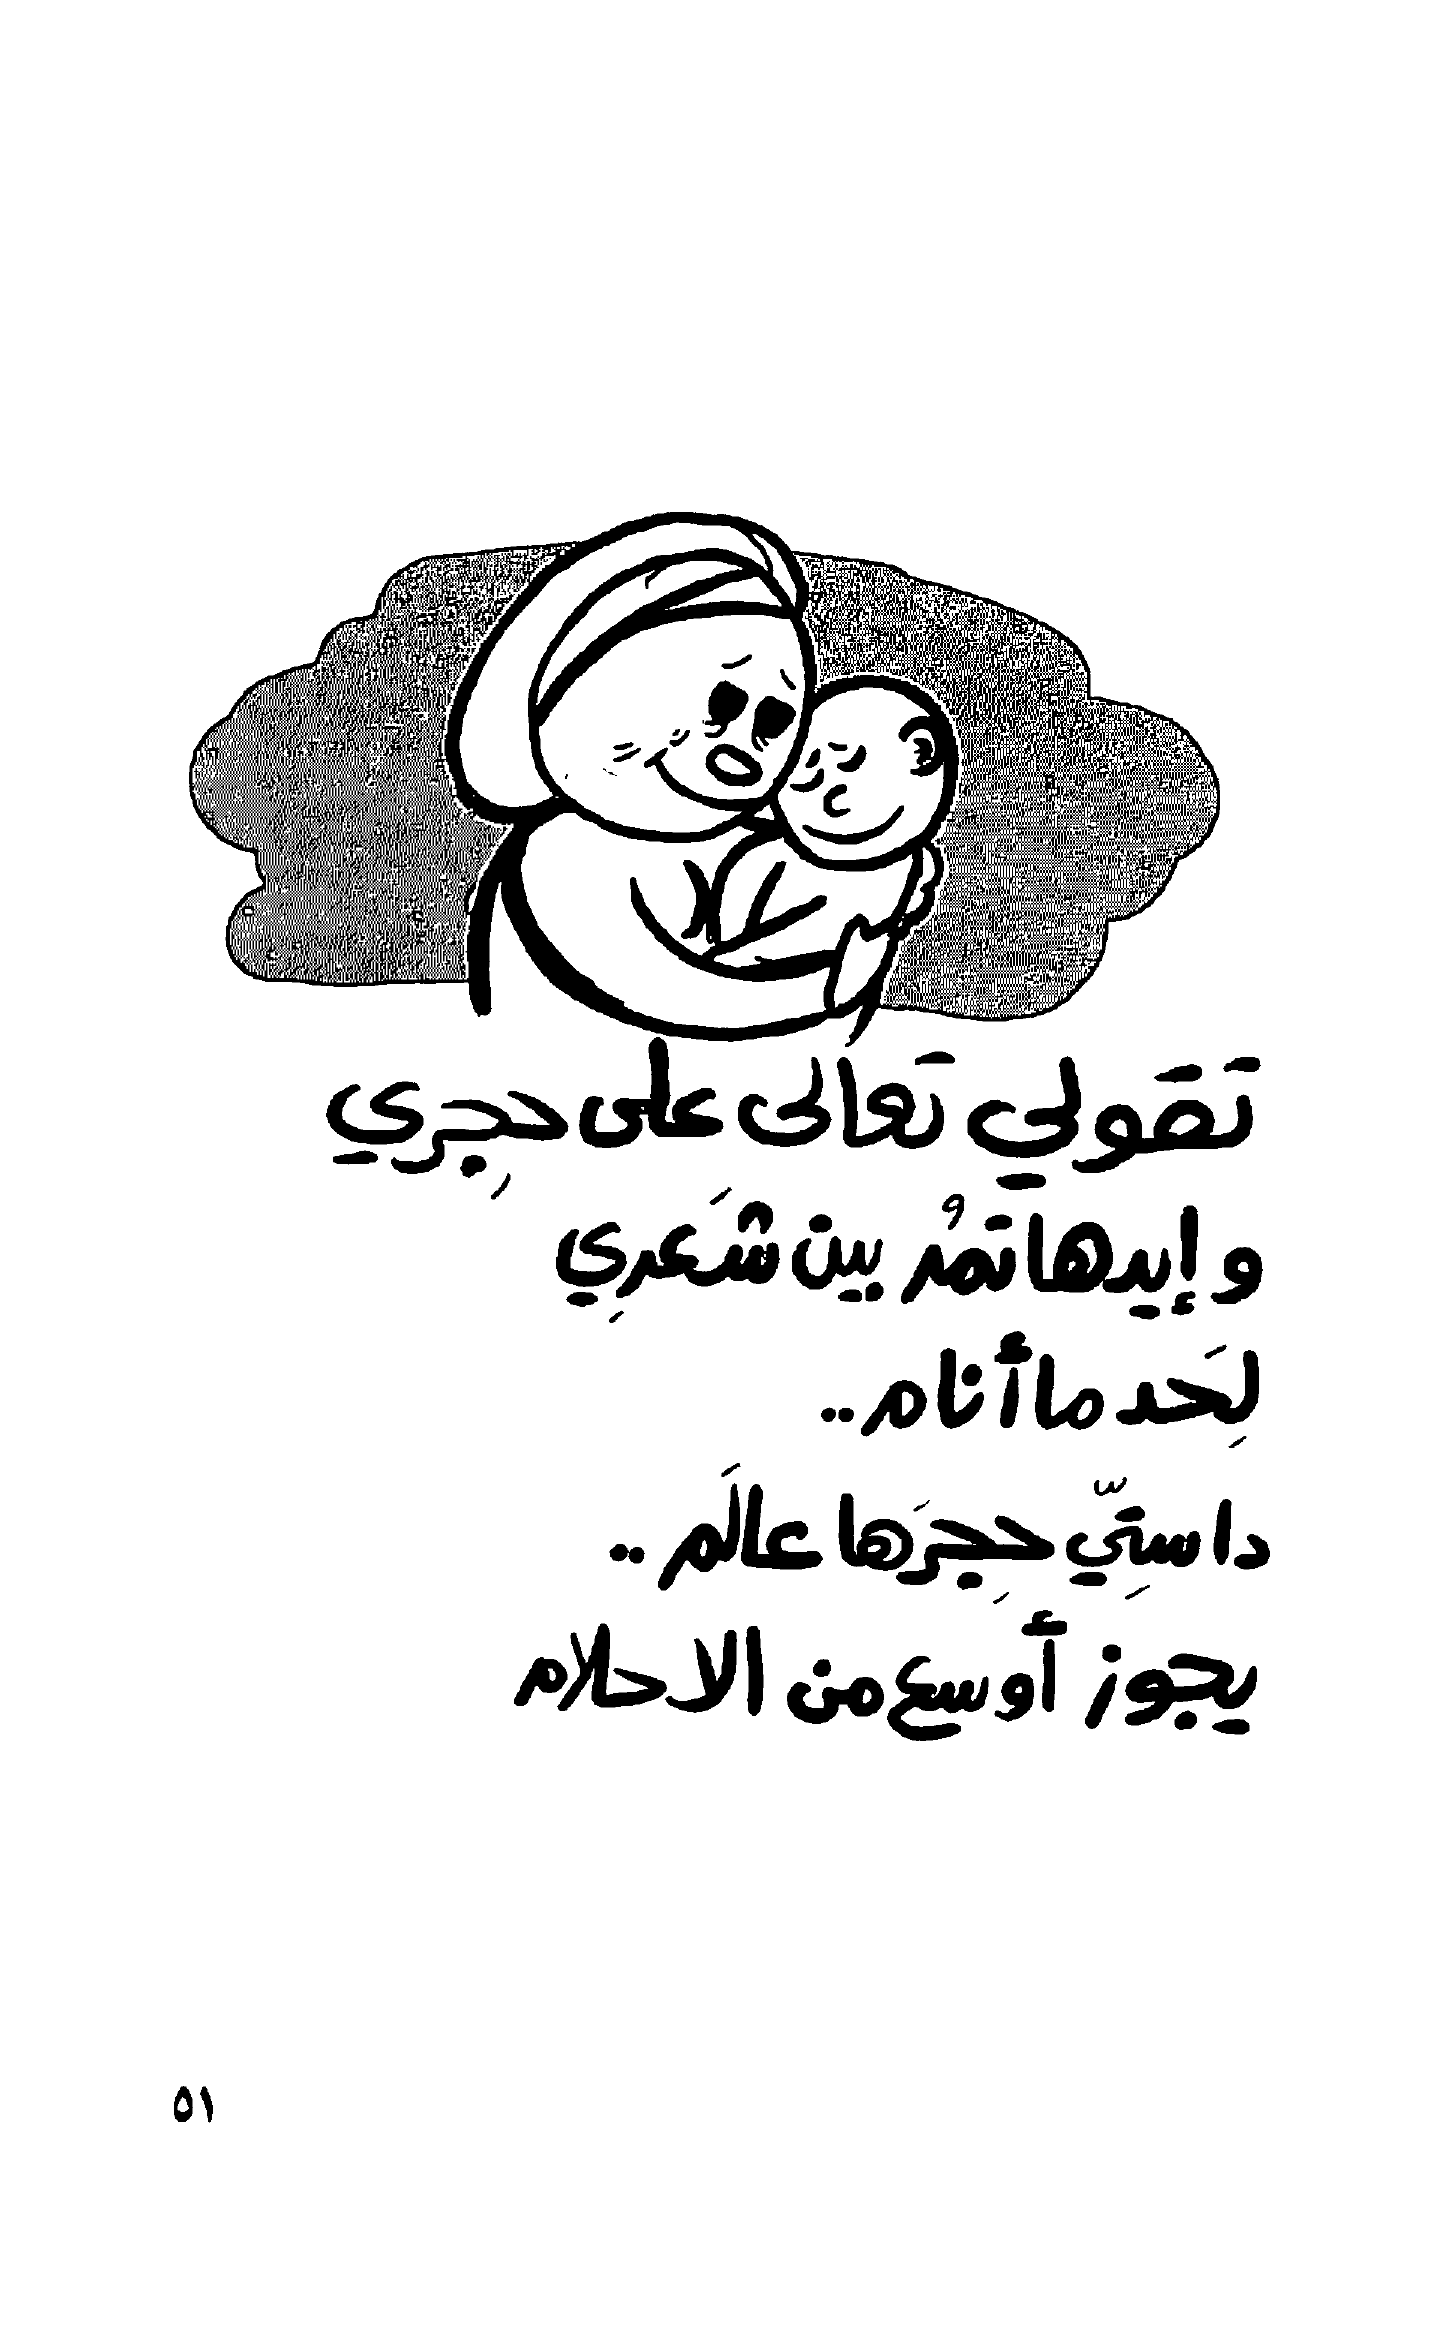 تَقَولي تَعالى على حِجِري
وإيدها تمُر بين شَعرِي
لِحَد ما أنام..
دا سِتِّي حِجِرَها عالَم..
يجوز أوسع من الاحلام
٥١